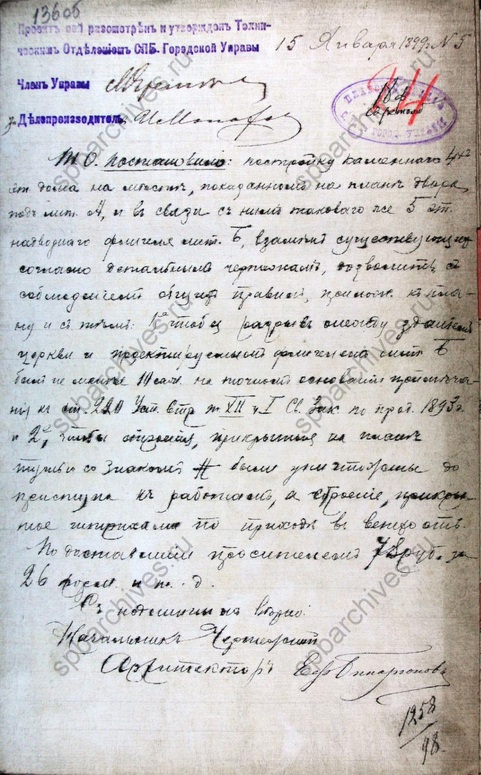 13606
Проектъ сей разсмотрѣнъ и утвержденъ Техни-
ческимъ Отдѣленіемъ СПБ. Городской Управы
15 Января 1899 г. № 5
Членъ Управы
Дѣлопроизводитель
24
Т.О. Постановило: постройку каменнаго 4хъ
эт. дома на мѣстѣ, показанномъ на планѣ двора
подъ лит. А, и въ связи съ нимъ таковаго же 5 эт.
надворнаго флигеля лит. Б, взамѣнъ существующаго
согласно детальнымъ чертежамъ, дозволить, съ
соблюденіемъ общихъ правилъ, прилож. къ пла-
ну и съ тѣмъ: 1е чтобы разрывъ между зданіемъ
церкви и проектируемымъ флигелемъ лит. Б
былъ не менѣе 10 саж. на точномъ основаніи примѣча-
нія къ ст. 220 Уст. Стр. т. XII ч. I Св. Зак. по прод. 1893 г.
и 2е, чтобы строенія, прикрытыя на планѣ
со знакомъ # были уничтожены до
приступа къ работамъ, а строеніе, прикры-
тое штрихами по приходѣ въ ветхость.
26 и т. д.
Съ подлиннымъ вѣрно:
Архитекторъ
1258
98
spbarchives.ru
spbarchives.ru
spbarchives.ru
spbarchives.ru